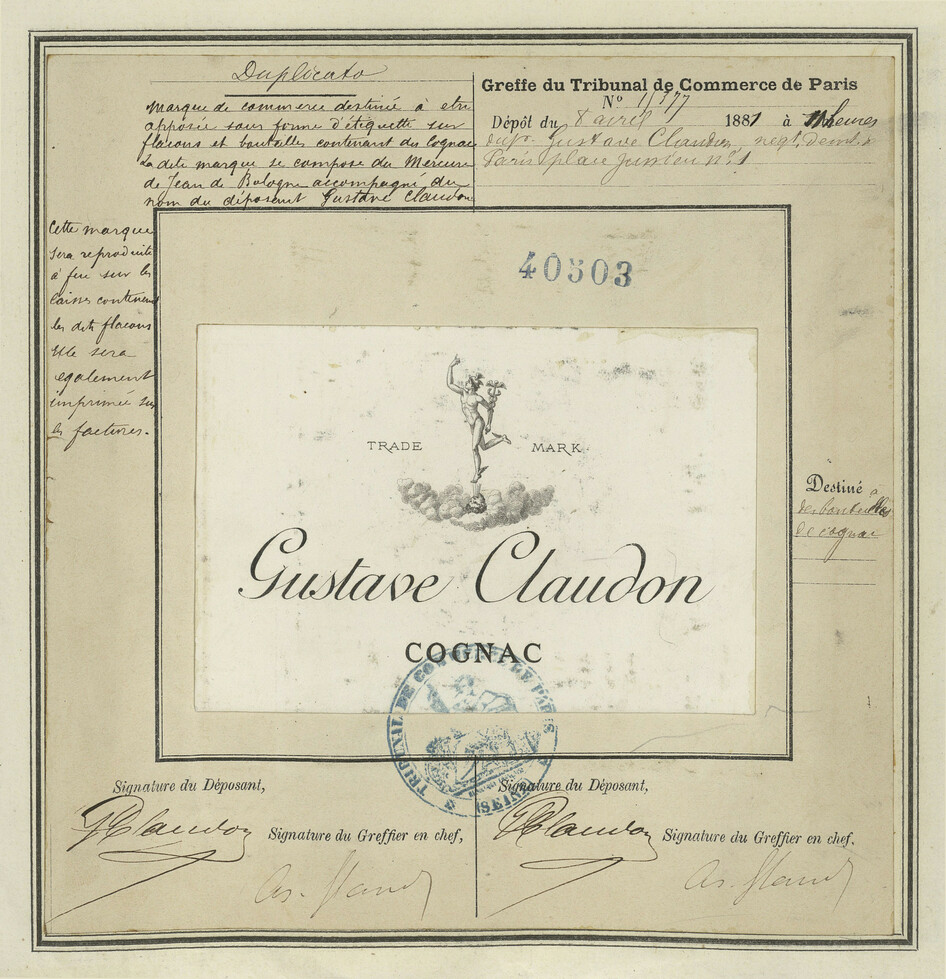 Duplicata
Marque de commerce destinée à etre
apposée sous forme d'étiquette sur
flacons et bouteilles contenant du Cognac
La dite marque se compose du Mercure
de Jean de Bologne accompagné du
nom du déposant Gustave Claudon
Greffe du Tribunal de Commerce de Paris
No
Dépôt du 8 avril 1881 à heures
Gustave Claudon, négt, demt à
Paris place Jussieu no 1
Cette marque
sera reproduite
à feu sur les
caisses contenant
les dits flacons
Elle sera
egalement
imprimée sur
les factures.
40503
TRADE MARK
Gustave Claudon
COGNAC
TRIBUNAL DE COMMERCE DE PARIS
(SEINE)
Destiné à
des bouteilles
de cognac
Signature du Déposant,
GClaudon
Signature du Greffier en chef,
Signature du Déposant,
GClaudon
Signature du Greffier en chef.